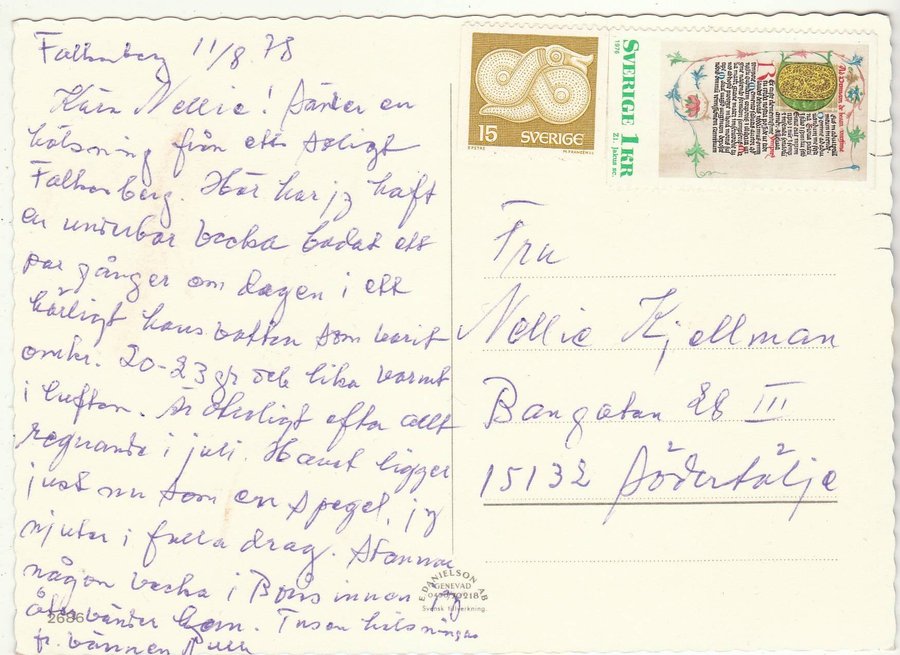 Falkenberg 11/8.78
Kära Nellie! Sänder en
hälsning från ett soligt
Falkenberg. Här har jg haft
en underbar vecka badat ett
par gånger om dagen i ett
härligt havsvatten som varit
omkr. 20-23 gr och lika varmt
i luften. Är otroligt efter allt
regnande i juli. Havet ligger
just nu som en spegel, jg
njuter i fulla drag. Stannar
någon vecka i Borås innan jg
åter vänder hem. Tusen hälsningar
fr. vännen
15 SVERIGE
SVERIGE 1 KR
1976
Fru
Nellie Kjellman
Bangatan III
15132 Södertälje
E. DANIELSON AB
GENEVAD
Svensk tillverkning.
2686